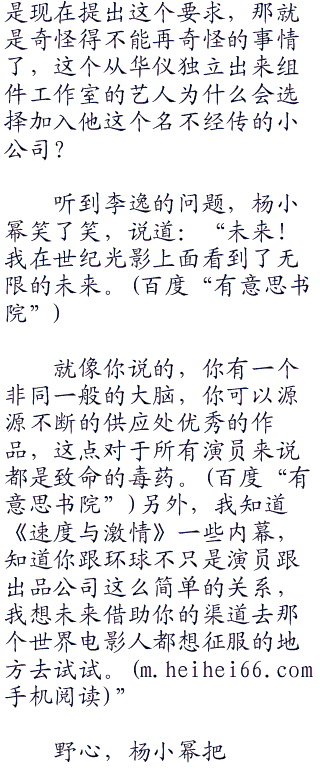 是现在提出这个要求，那就
是奇怪得不能再奇怪的事情
了，这个从华仪独立出来组
件工作室的艺人为什么会选
择加入他这个名不经传的小
公司？
听到李逸的问题，杨小
幂笑了笑，说道：“未来！
我在世纪光影上面看到了无
限的未来。(百度“有意思书
院”)
就像你说的，你有一个
非同一般的大脑，你可以源
源不断的供应处优秀的作
品，这点对于所有演员来说
都是致命的毒药。(百度“有
意思书院”)另外，我知道
《速度与激情》一些内幕，
知道你跟环球不只是演员跟
出品公司这么简单的关系，
我想未来借助你的渠道去那
个世界电影人都想征服的地
方去试试。(m.heihei66.com
手机阅读)”
野心，杨小幂把